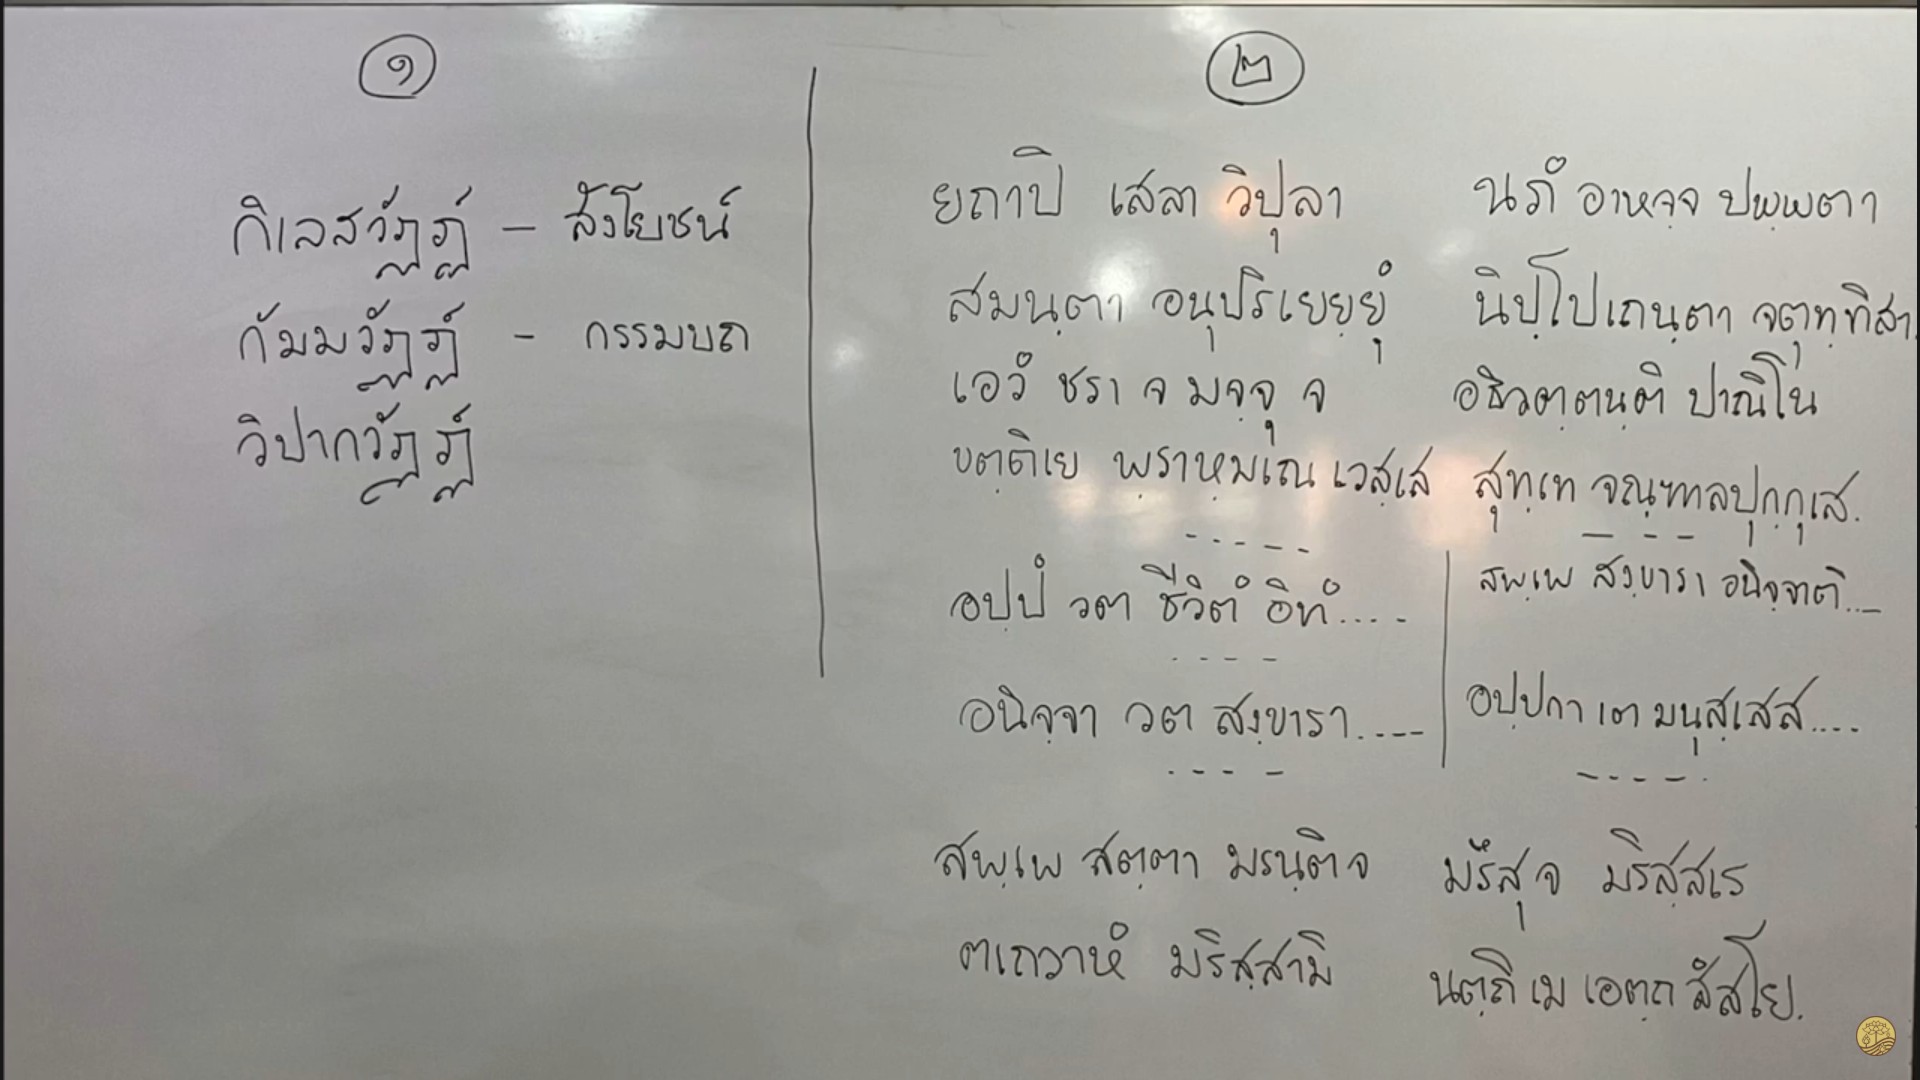 ๑
กิเลสวัฏฏ์ – สังโยชน์
กัมมวัฏฏ์ - กรรมบถ
วิปากวัฏฏ์
๒
ยถาปิ เสลา วิปุลา นภํ อาหจฺจ ปพฺพตา
สมนฺตา อนุปริเยยฺยุํ นิปฺโปเถนฺตา จตุทฺทิสา.
เอวํ ชรา จ มจฺจุ จ อธิวตฺตนฺติ ปาณิโน
ขตฺติเย พฺราหฺมเณ เวสฺเส สุทฺเท จณฺฑาลปุกฺกุเส.
-----
อปฺปํ วต ชีวิตํ อิทํ.....
----
อนิจฺจา วต สงฺขารา.....
----
---
สพฺเพ สงฺขารา อนิจฺจาติ...
อปฺปกา เต มนุสฺเสสุ....
-----
สพฺเพ สตฺตา มรนฺติ จ มรึสุ จ มริสฺสเร
ตเถวาหํ มริสฺสามิ นตฺถิ เม เอตฺถ สํสโย.